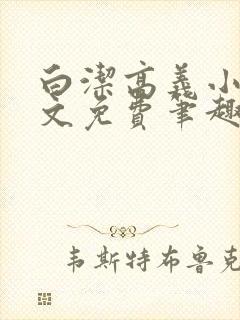 白潔高義小
文免費筆趣
韦斯特布鲁克